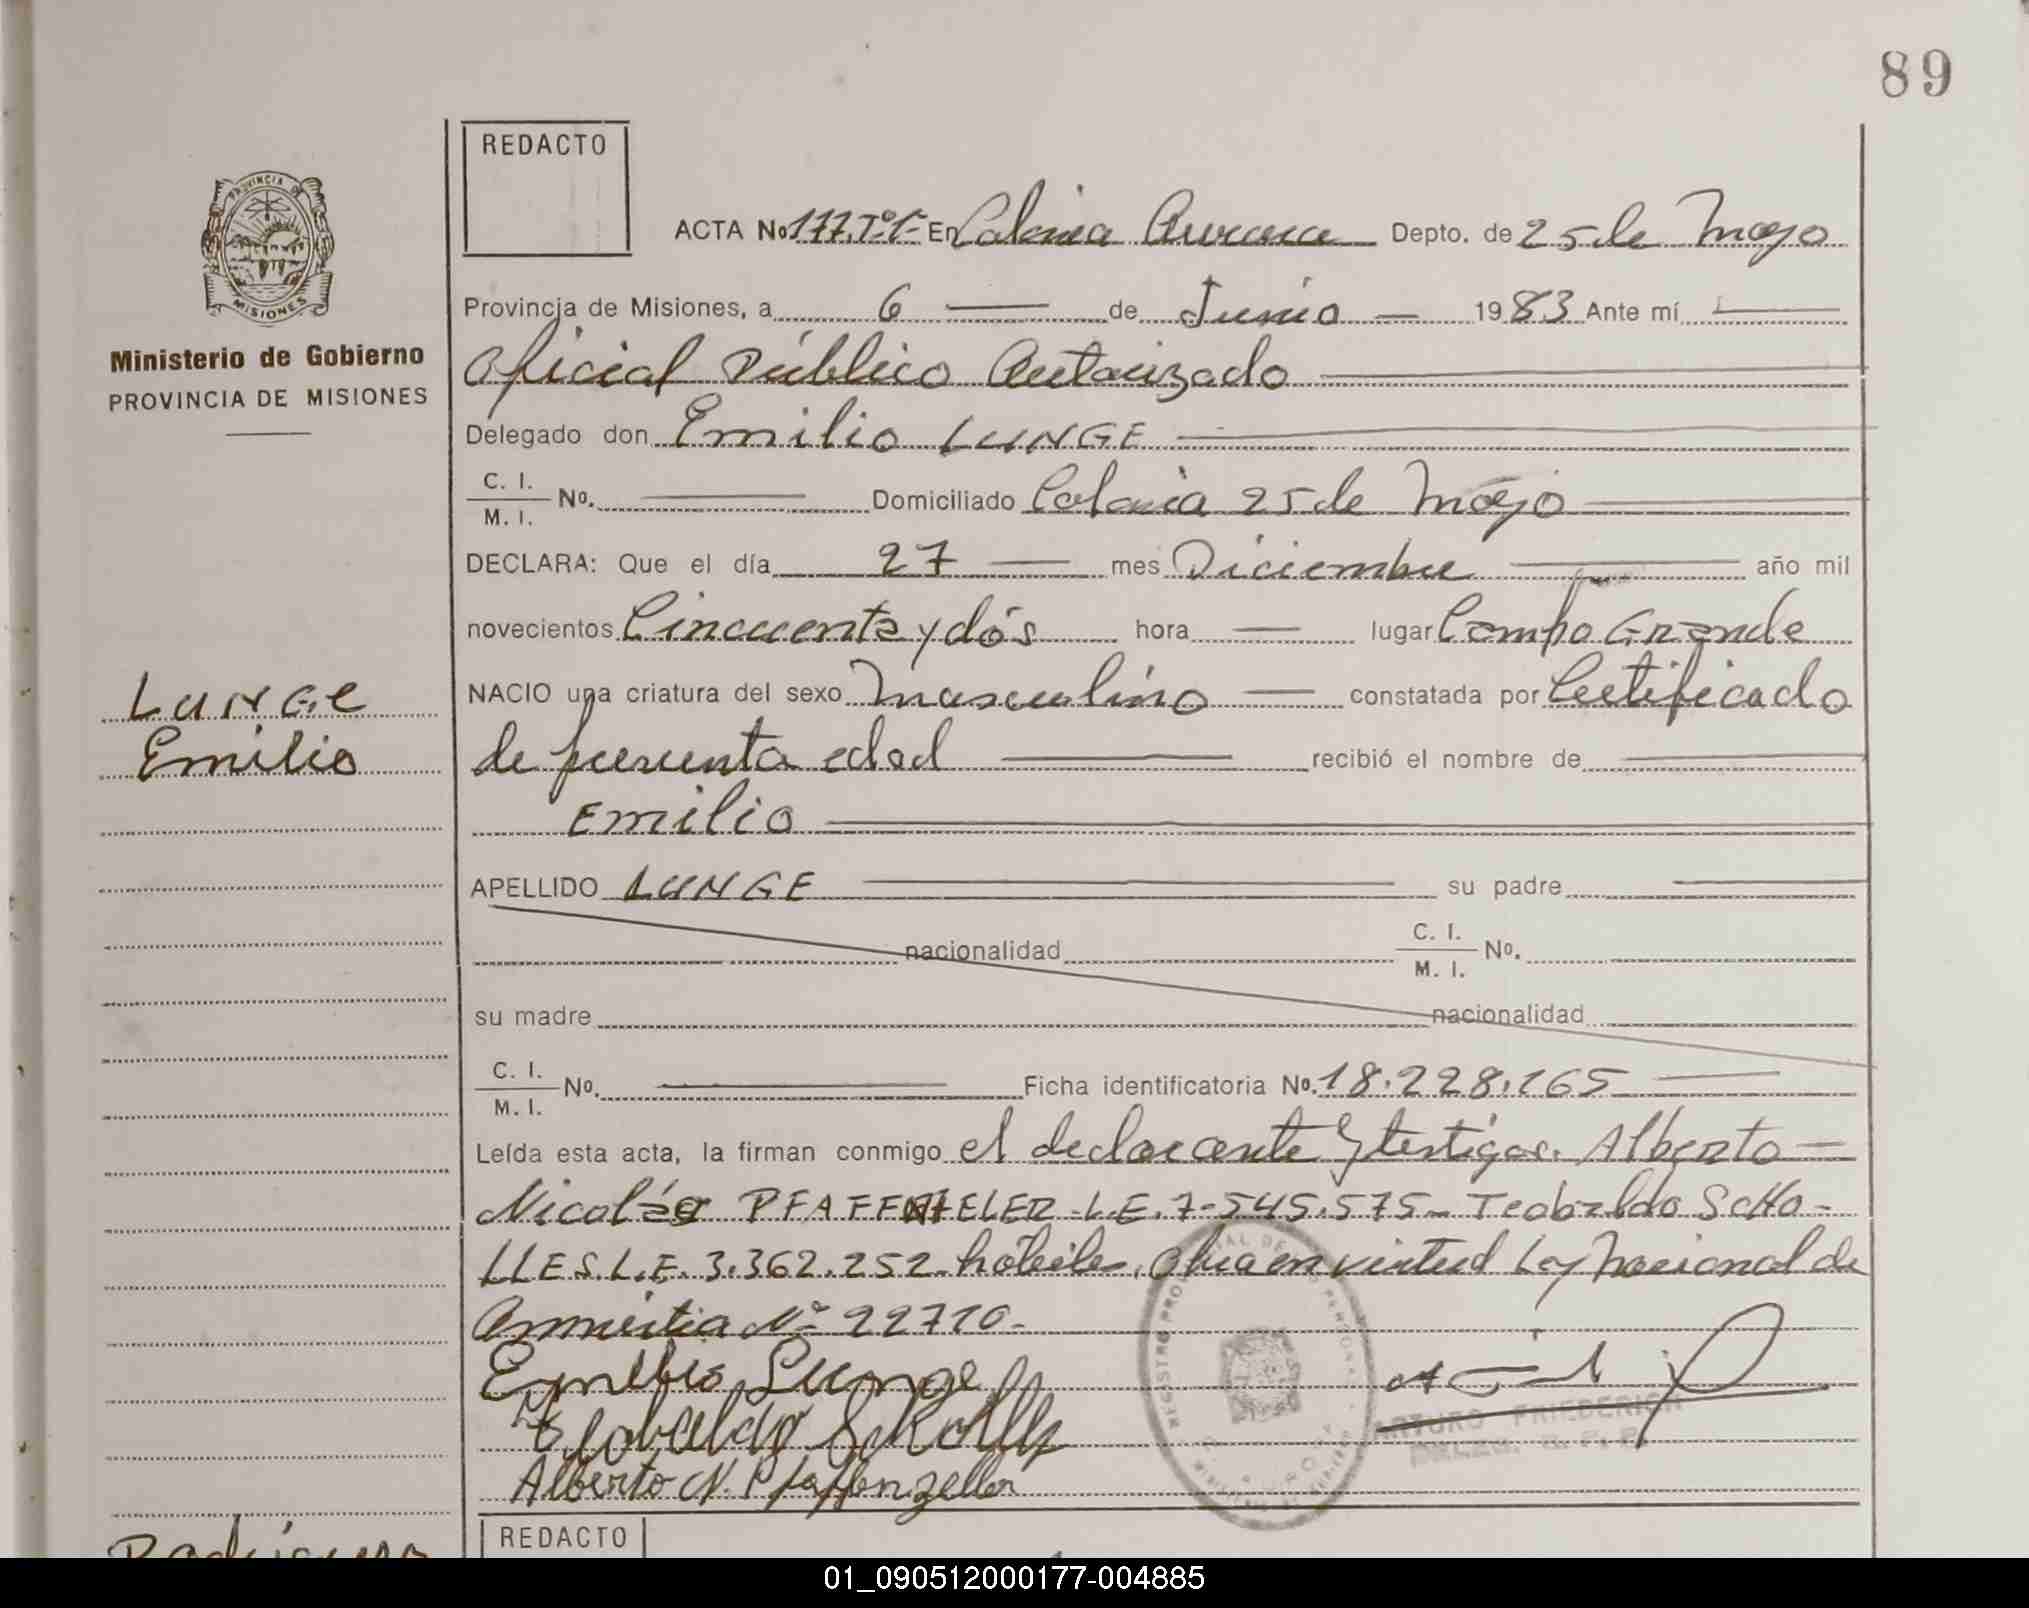 89
REDACTO
ACTA No 177. Tº 1º En Colonia Aurora Depto. de 25 de Mayo
Provincia de Misiones, a 6 de Junio 1983 Ante mí
Oficial Público Autorizado
Ministerio de Gobierno
PROVINCIA DE MISIONES
Delegado don Emilio LUNGE
C. I.
M. I. No. Domiciliado Colonia 25 de Mayo
DECLARA: Que el día 27 mes Diciembre año mil
novecientos Cincuenta y dós hora lugar Campo Grande
LUNGE
Emilio
NACIO una criatura del sexo masculino constatada por Certificado
de presunta edad recibió el nombre de
Emilio
APELLIDO LUNGE su padre
nacionalidad C. I.
M. I. No.
su madre nacionalidad
C. I.
M. I. No. Ficha identificatoria No. 18.228.165
Leída esta acta, la firman conmigo el declarante y testigos. Alberto
Nicolás PFAFENZELER L.E. 7.545.575- Teobaldo SCHO-
LLES. L.E. 3.362.252- habiles, obra en virtud Ley Nacional de
Amnistia Nº 22710-
Emilio Lunge
Teobaldo
Alberto N. Pfaffenzeller
REGISTRO PROVINCIAL DE
ARTURO FRIEDERICH
REDACTO
01_090512000177-004885